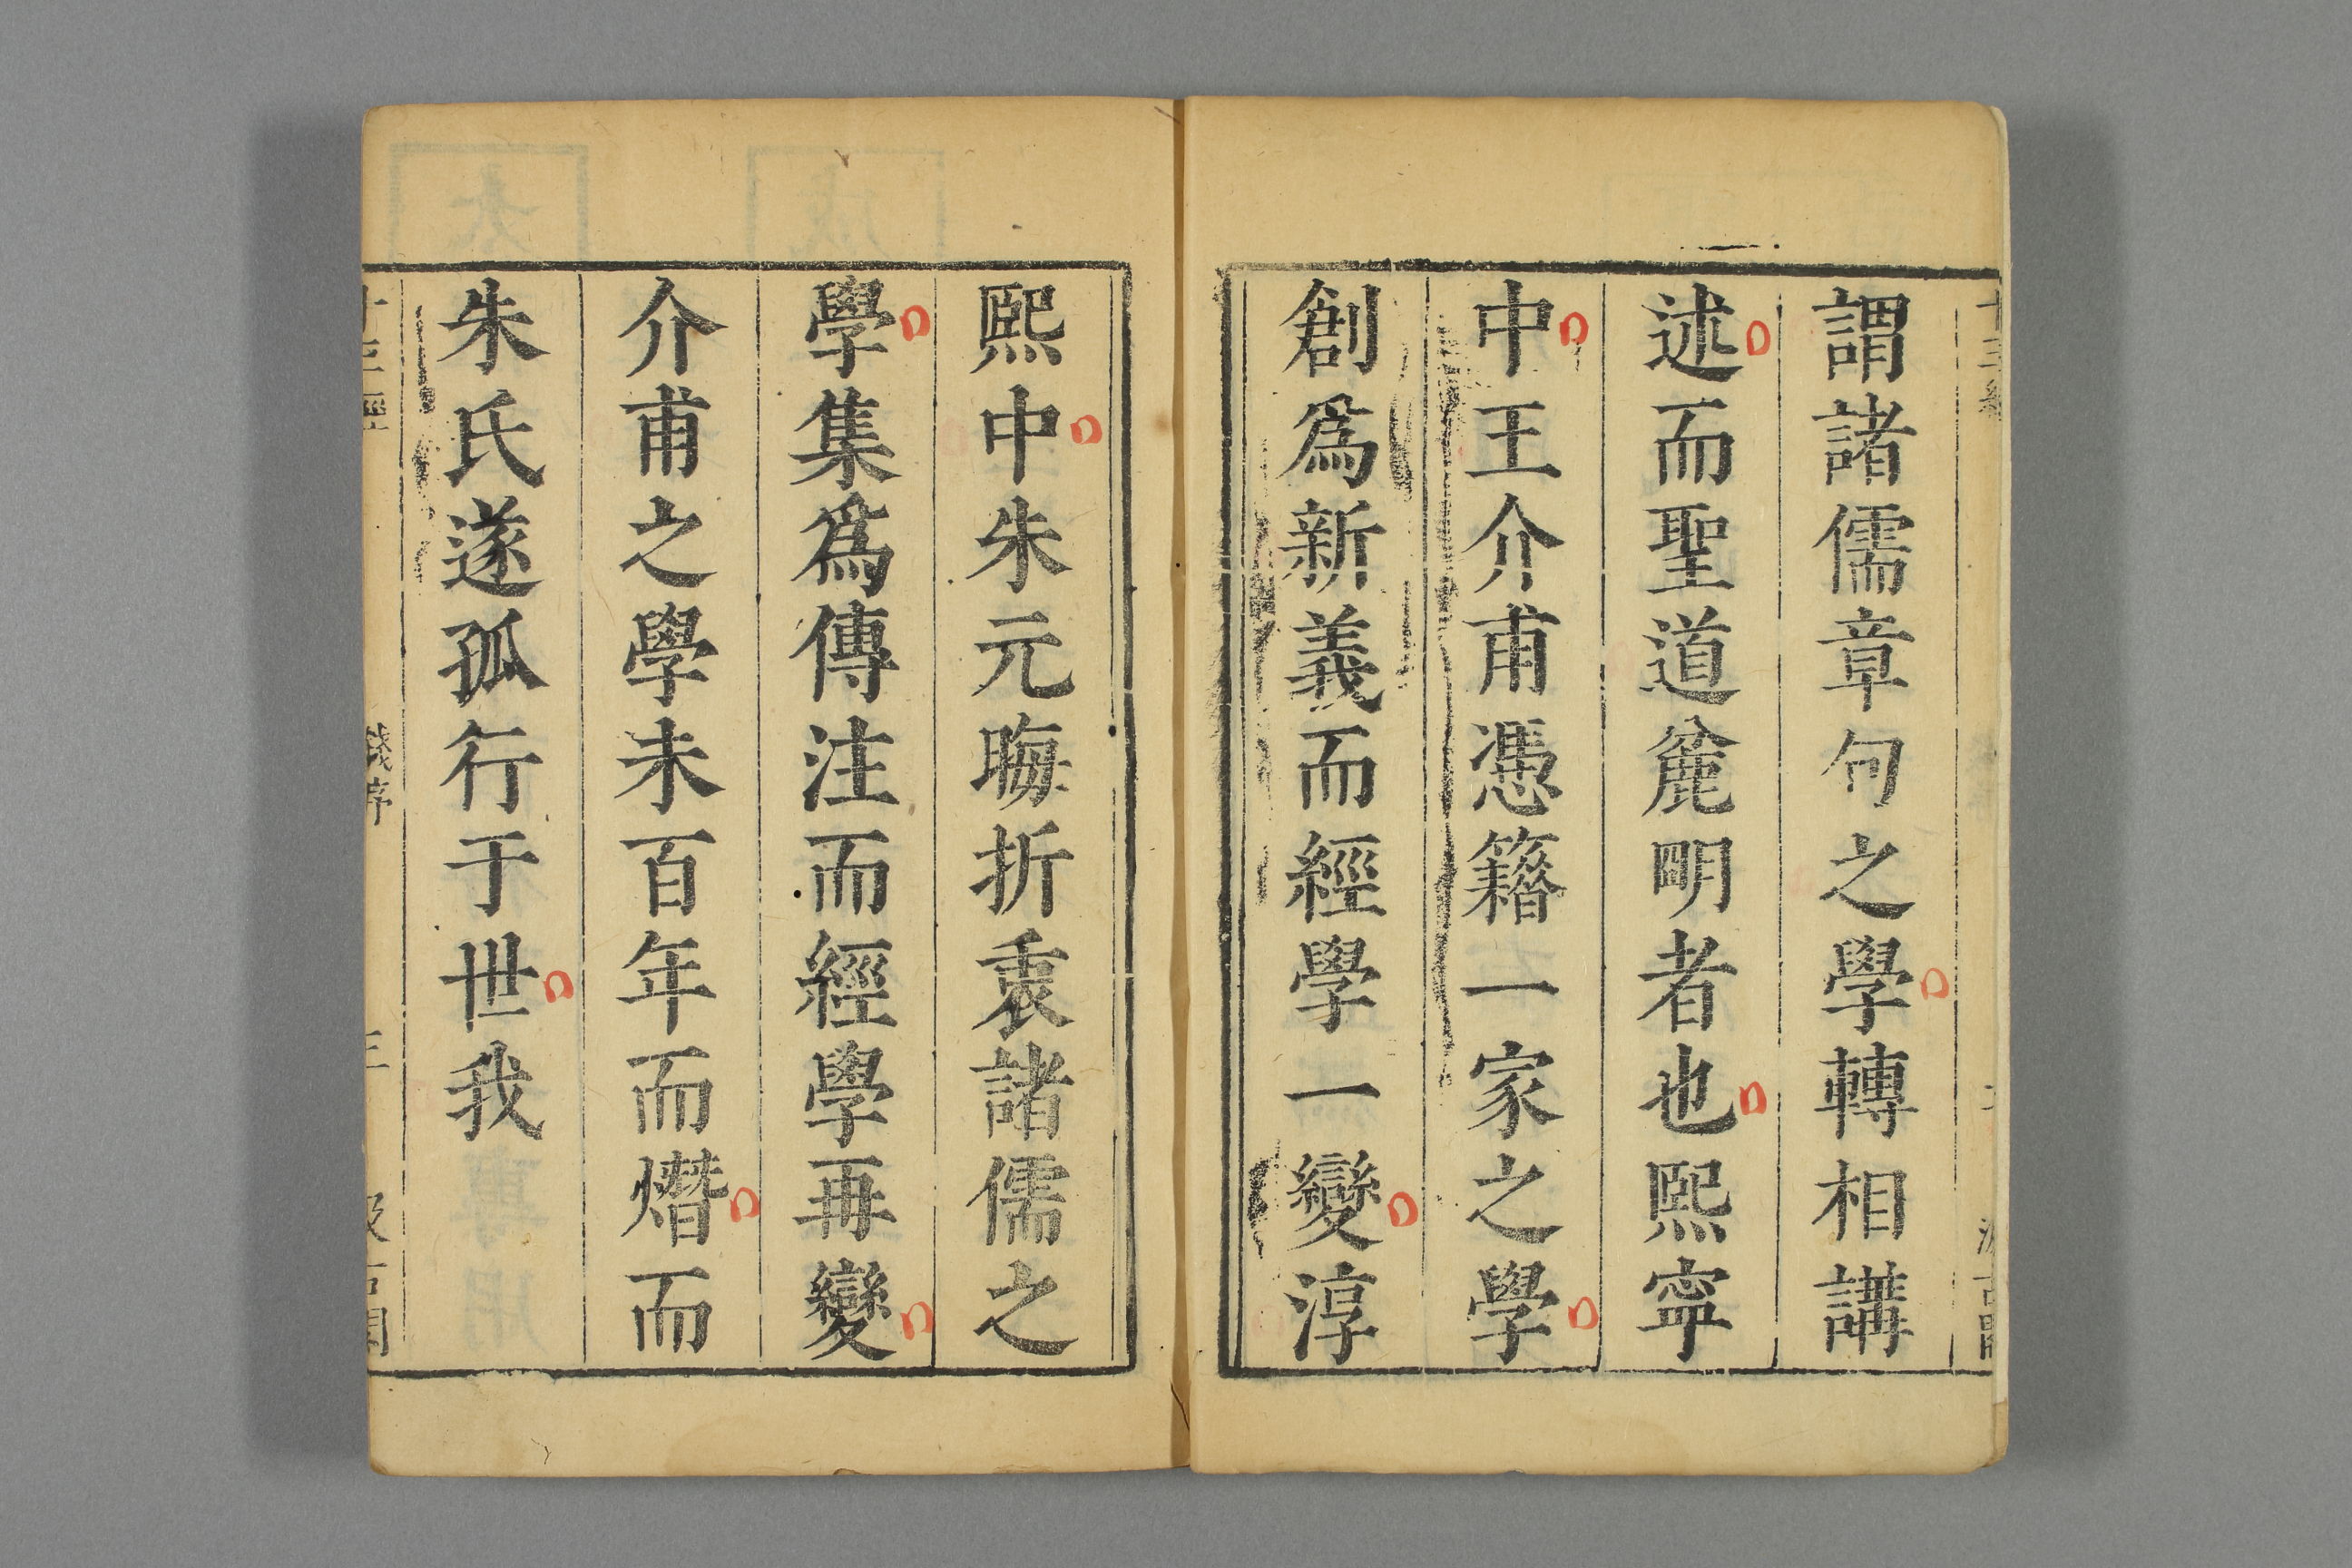 謂諸儒章句之學轉相講
述而聖道麄明者也熙寧
中王介甫憑籍一家之學
創爲新義而經學一變淳
熙中朱元晦折衷諸儒之
學集爲傳注而經學再變
介甫之學未百年而熸而
朱氏遂孤行于世我
十三經
錢序
三
汲古閣